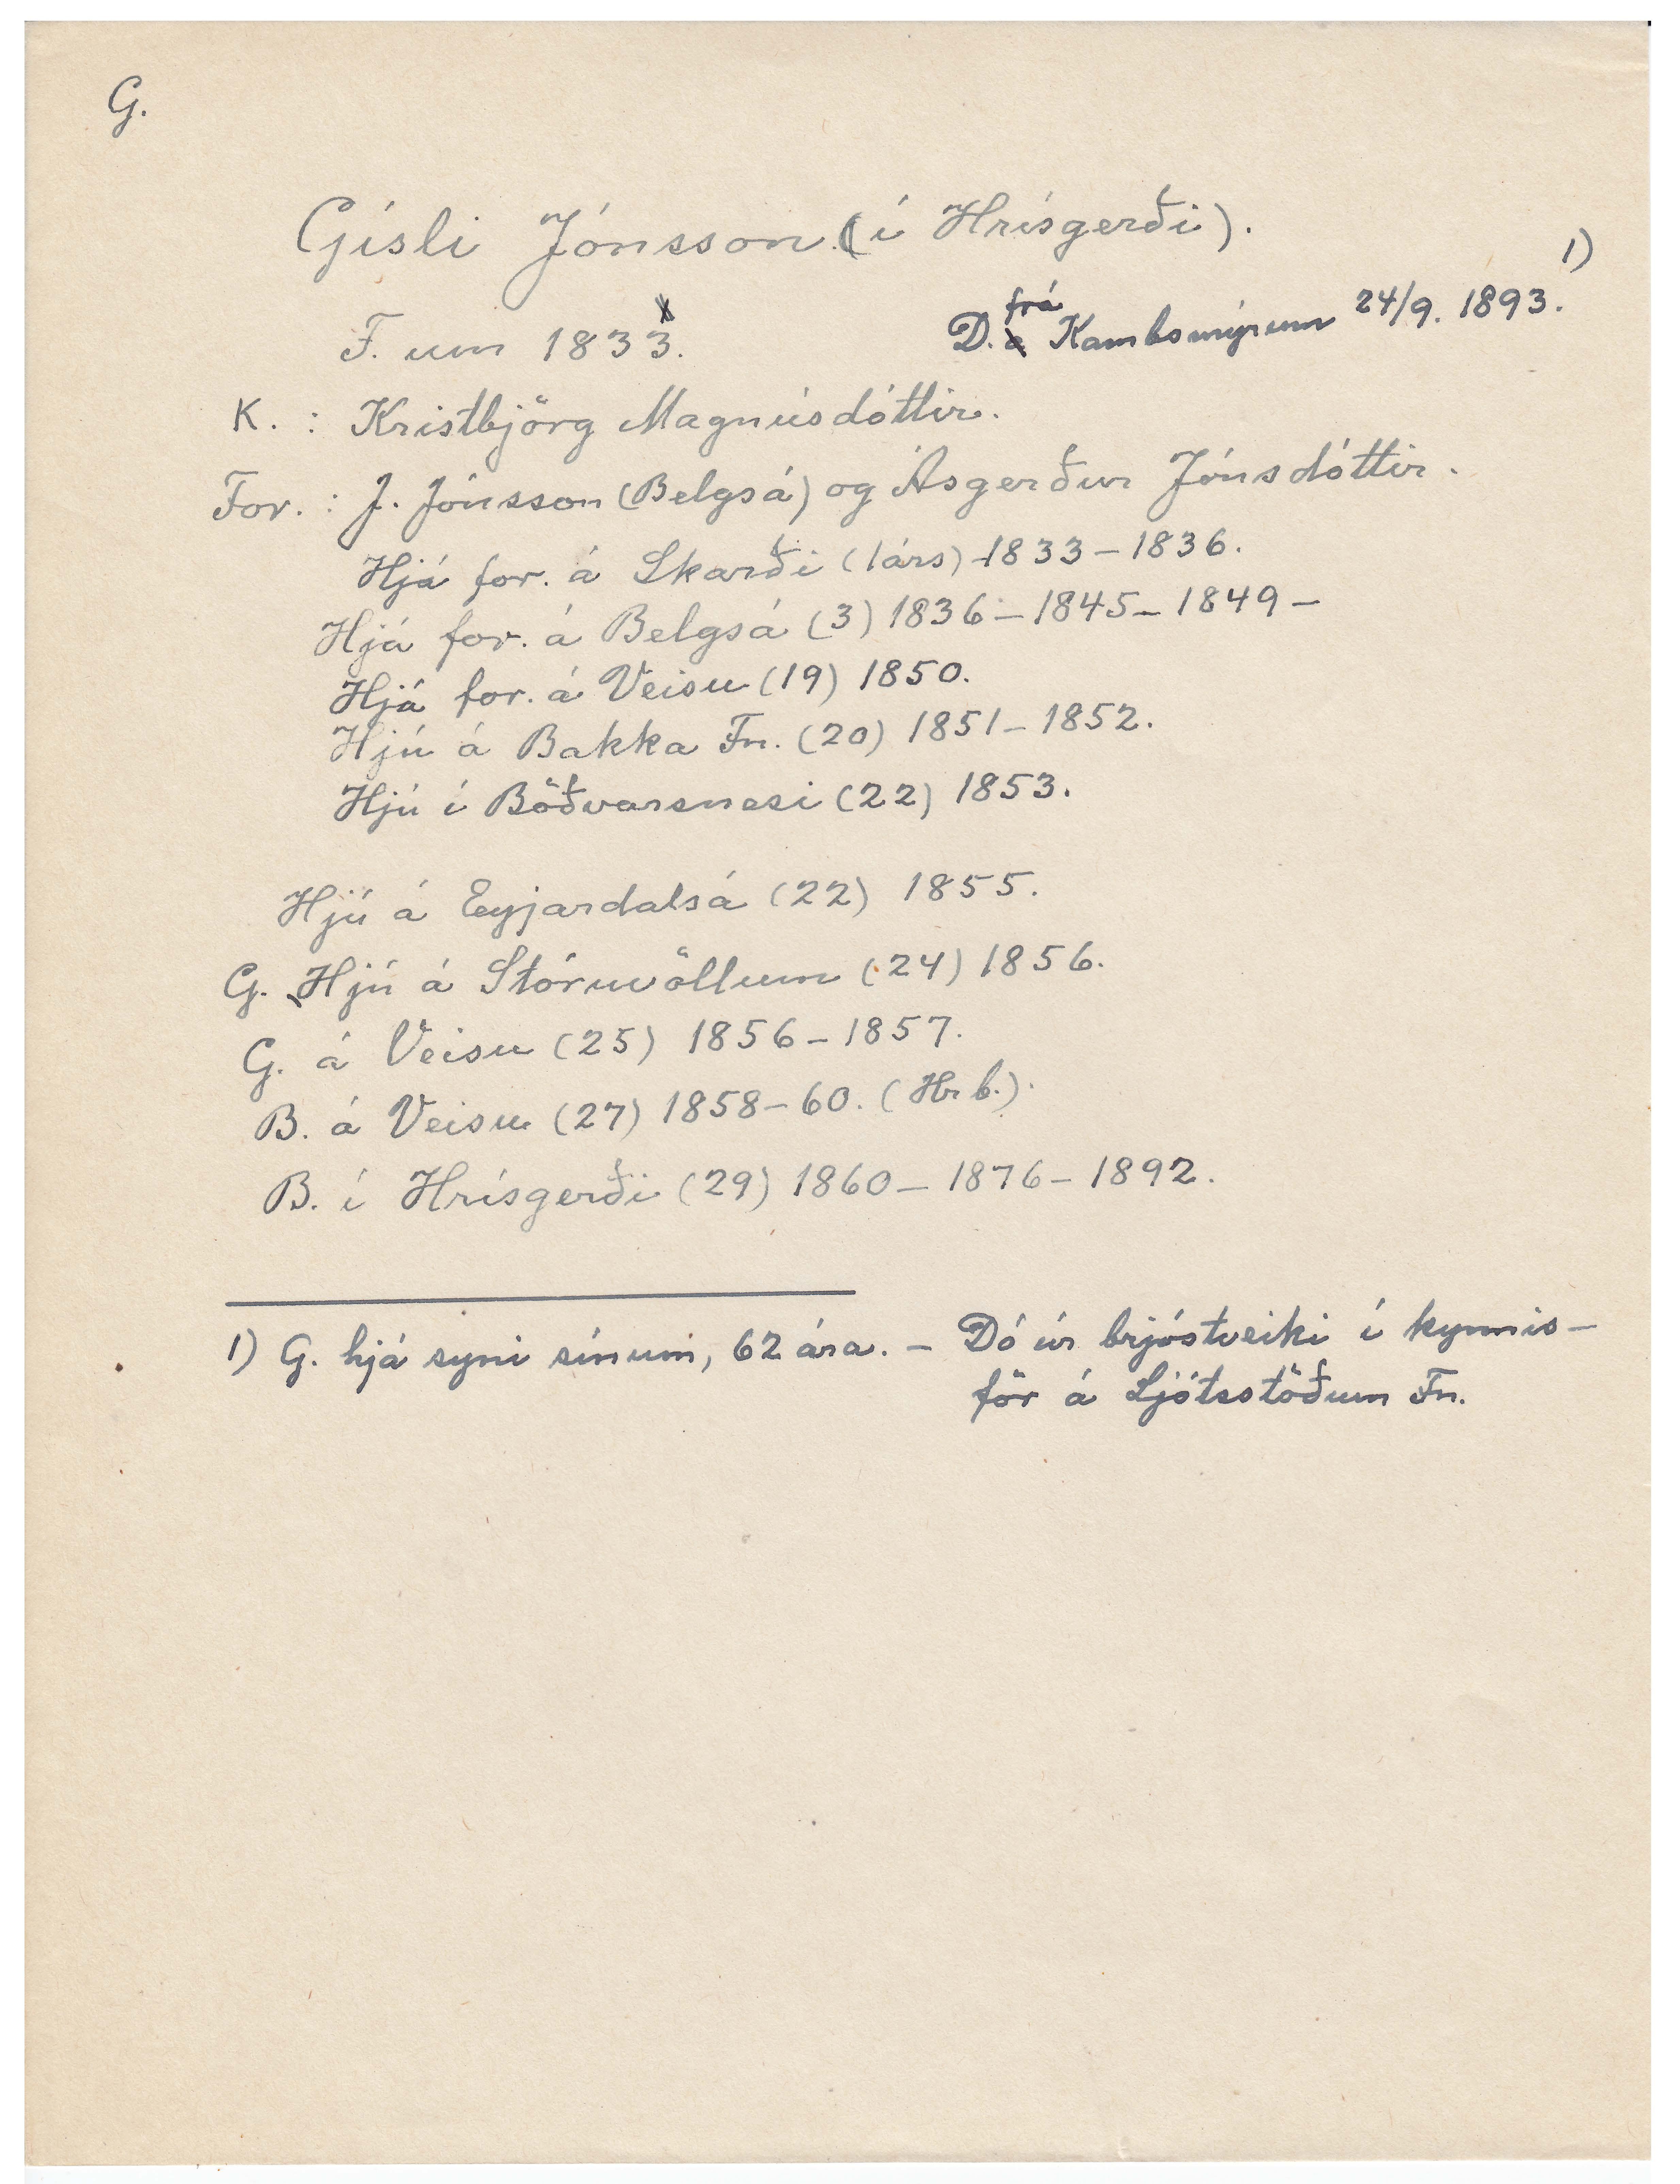 G.
Gísli Jónsson (í Hrísgerði).
F. um 1833.
D. frá Kambsmýrum 24/9. 1893. 1)
K. : Kristbjörg Magnúsdóttir.
For. : J. Jónsson (Belgsá) og Ásgerður Jónsdóttir.
Hjá for. á Skarði (1árs) 1833 – 1836.
Hjá for. á Belgsá (3) 1836 – 1845 – 1849 –
Hjá for. á Veisu (19) 1850.
Hjú á Bakka Fn. (20) 1851 – 1852.
Hjú í Böðvarsnesi (22) 1853.
Hjú á Eyjardalsá (22) 1855.
G. Hjú á Stóruvöllum (24) 1856.
G. á Veisu (25) 1856 – 1857.
B. á Veisu (27) 1858 – 60. (Hr b.).
B. í Hrísgerði (29) 1860 – 1876 – 1892.
1) G. hjá syni sínum, 62 ára. – Dó úr brjóstveiki í kynnis-
för á Ljótsstöðum Fn.